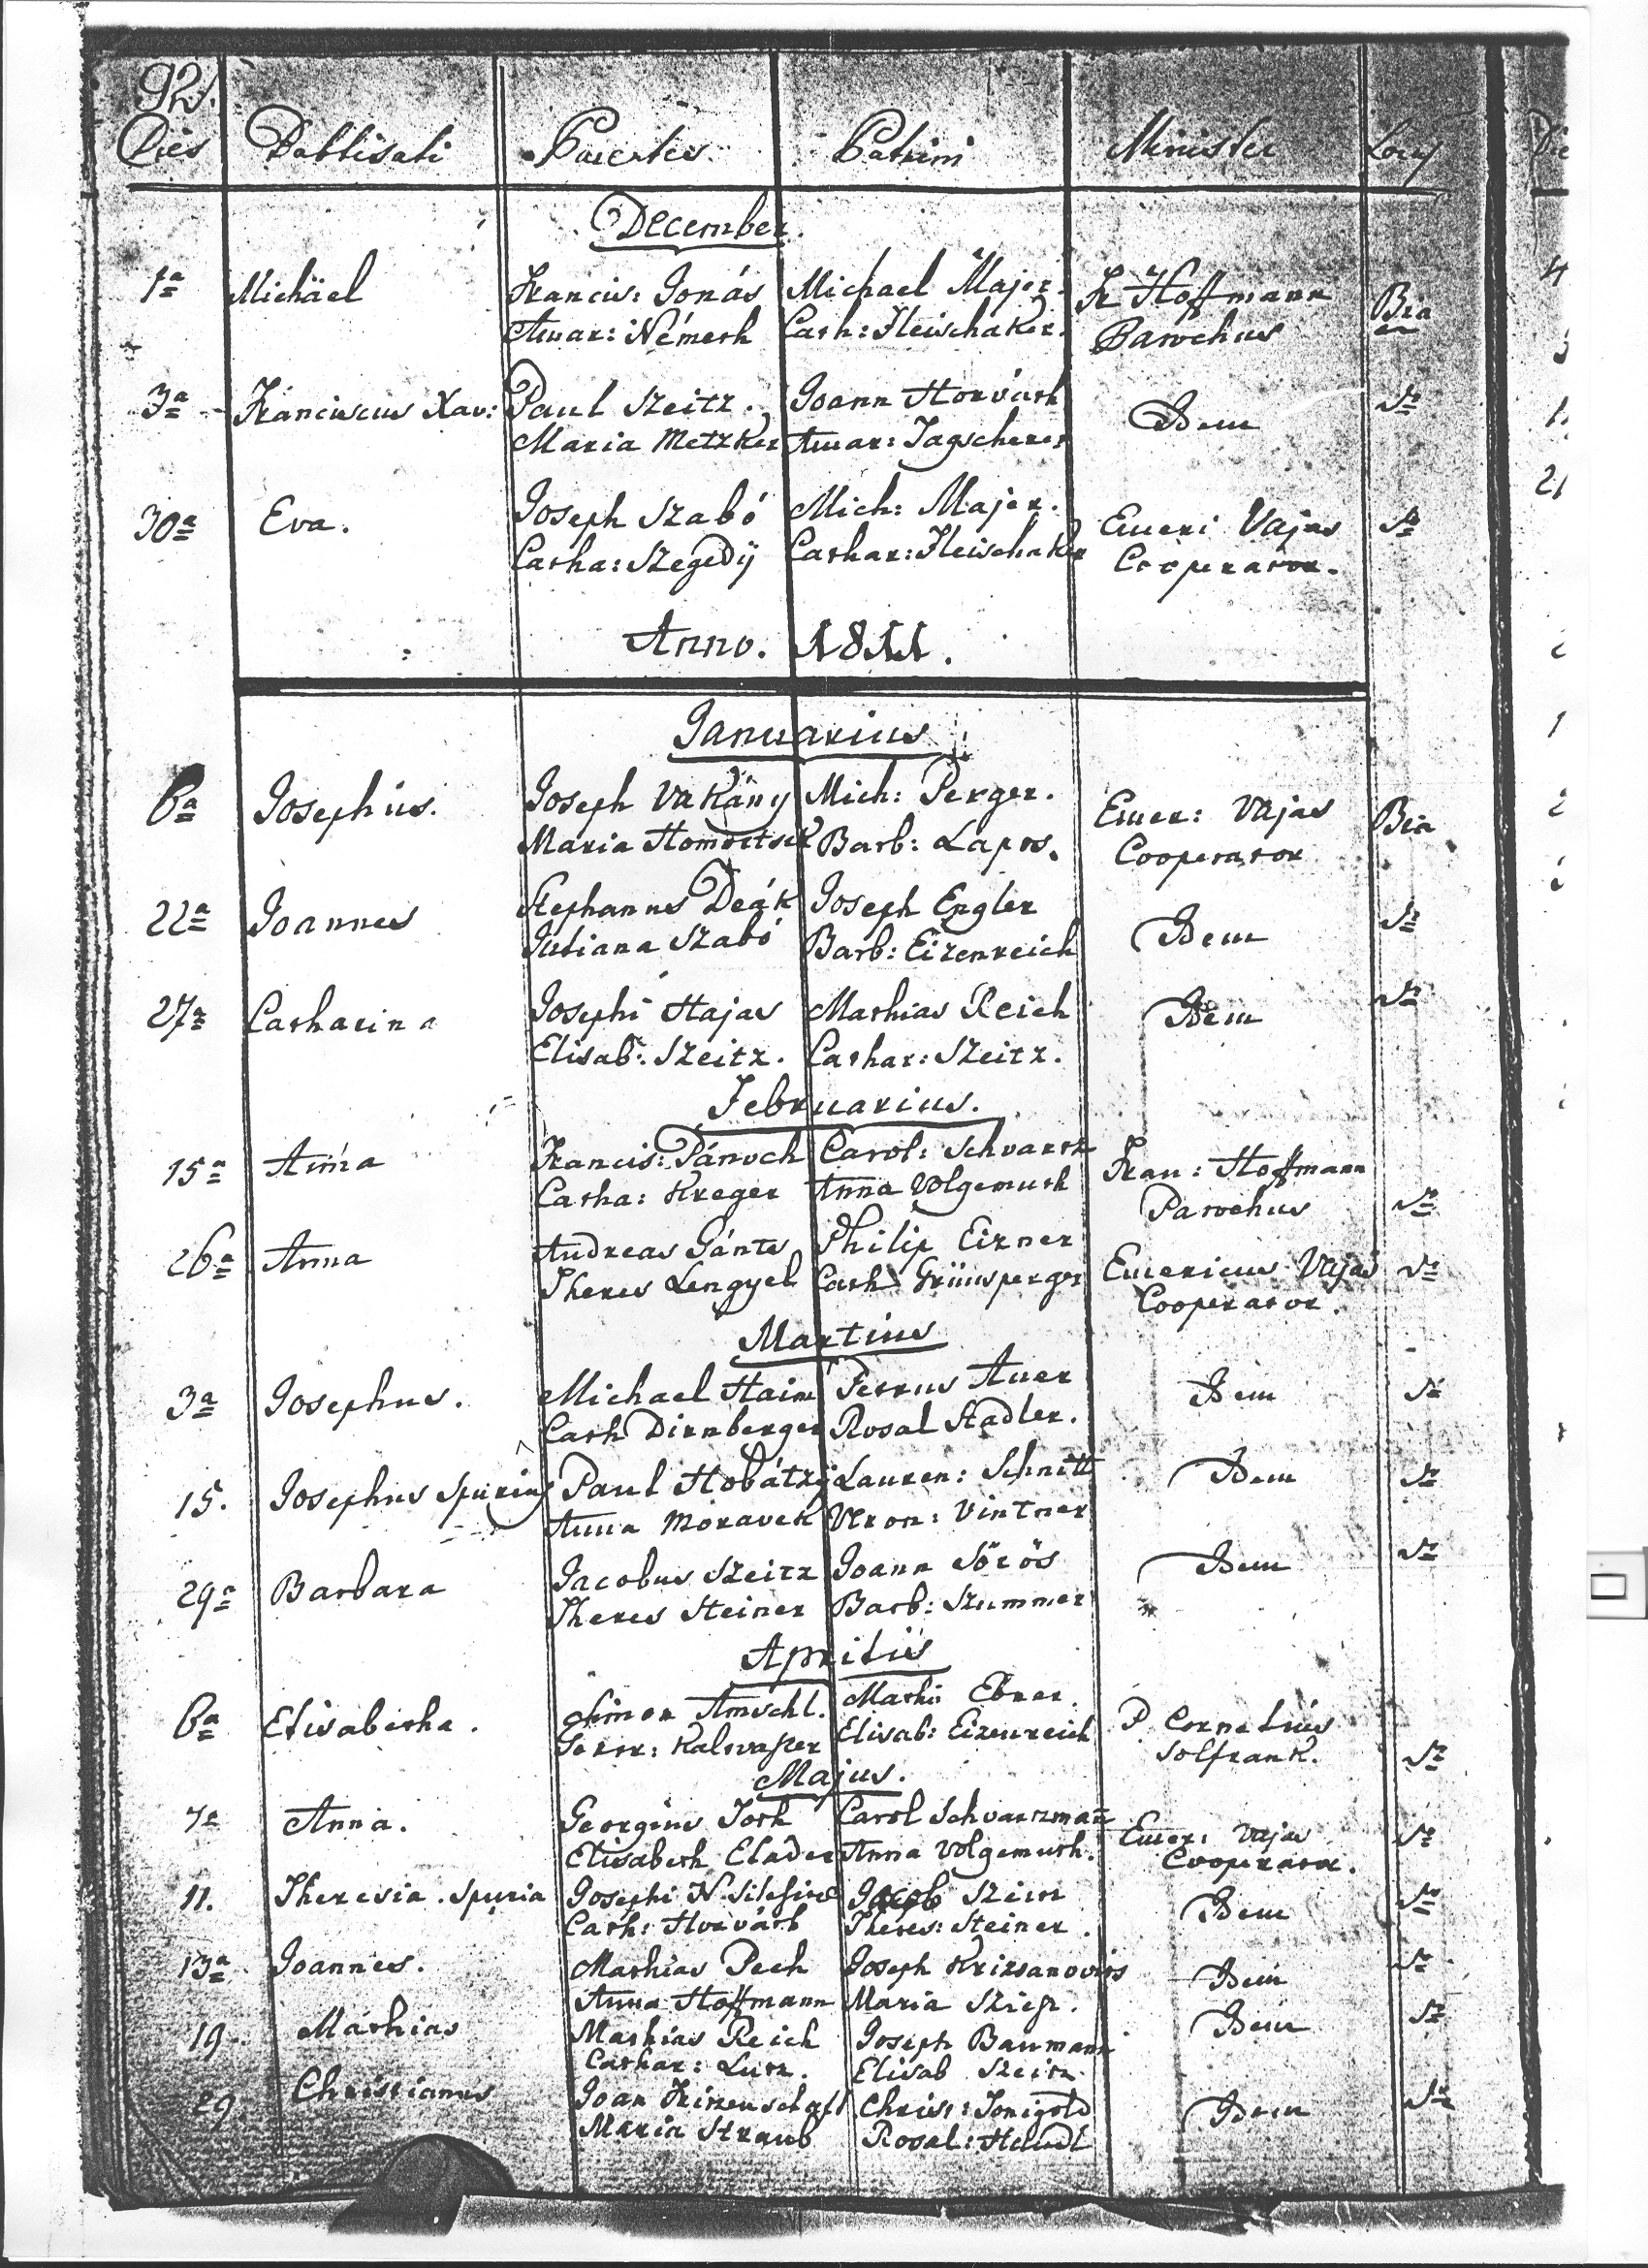 92.
Dies Babtisati Parentes Patrini Minister Locus
December.
1a Michäel Francis: Jonás Michael Majer. Fr Hoffmann Bia
Annar: Németh Cath: Fleischaker. Parochus
3a Franciscus Xav: Paul Szeitz. Joann Horváth Idem
Maria Metzker Annar: Jagscherer
30a Eva. Joseph Szabó Mich: Majer. Emeri Vajas
Catha: Szegedÿ Cathar: Fleischaker Cooperator.
Anno. 1811.
Januarius
6a Josephus. Joseph Vakány Mich: Perger. Emer: Vajas Bia
Maria Barb: Lapos. Cooperator
22a Joannes Stephanus Deák Joseph Engler Idem
Juliana Szabó Barb: Eizenreich
27a Catharina Josephi Hajas Mathias Reich Idem
Elisab: Szeitz. Cathar: Szeitz.
Februarius.
15a Anna Francis: Pánoch Carol: Schvartz Fran: Hoffmann
Catha: Kreger Anna Volgemuth Parochus
26a Anna Andreas Gánts Philip Eizner Emericus Vajas
Theres Lengyel Cath Grünsperger Cooperator.
Martius
3a Josephus. Michael Haim Petrus Auer Idem
Cath Dirnberger Rosal Stadler.
15. Josephus Spurius Paul Lauren: Schnitt Idem
Anna Moravek Veron: Vintner
29a Barbara Jacobus Szeitz Joann Sörös Idem
Theres Steiner Barb: Szummer
Aprilis
6a Elisabetha. Simon Amschl. Mathi Ebner. P. Cornelius
Elisab: Eizenreich Solfrank.
Majus.
7a Anna. Georgius Toth Carol Schvarzman Emer: Vajas
Elisabeth Elader Anna Volgemuth. Cooperator.
11. Theresia. Spuria Josephi N. Jacob Idem
Cath: Horváth Theres: Steiner.
13a Joannes. Mathias Pech Joseph Idem
Anna Hoffmann Maria
19. Mathias Mathias Reich Joseph Baumann Idem
Cathar: Lutz. Elisab Szeitz.
29. Christianus Joan Christ: Idem
Maria Straub Rosal: